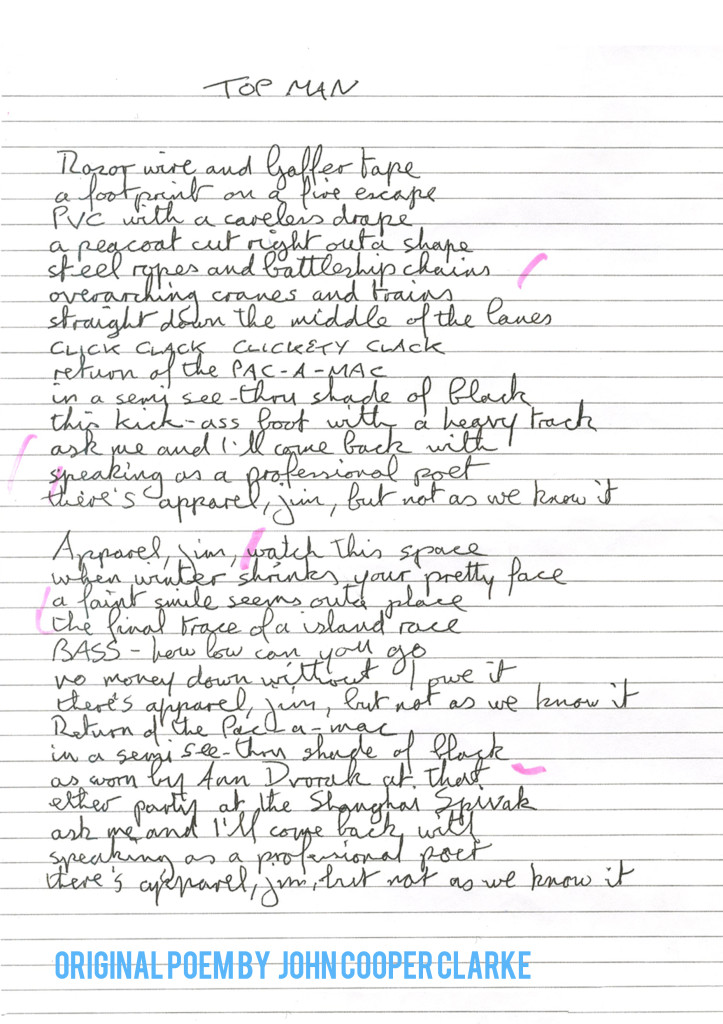 TOP MAN
Razor wire and Gaffer tape
a footprint on a fire escape
PVC with a careless drape
a peacoat cut right outa shape
steel ropes and battleship chains
overarching cranes and trains
straight down the middle of the lanes
CLICK CLACK CLICKETY CLACK
return of the PAC-A-MAC
in a semi see-thru shade of black
this kick-ass boot with a heavy track
ask me and I'll come back with
speaking as a professional poet
there's apparel, jim, but not as we know it
Apparel, jim, watch this space
when winter shrinks your pretty face
a faint smile seems outa place
the final trace of a island race
BASS - how low can you go
no money down without I owe it
there's apparel, jim, but not as we know it
Return of the Pac-a-mac
in a semi see-thru shade of black
as worn by Ann Dvorak at that
ether party at the Shanghai Spivak
ask me and I'll come back with
speaking as a profesional poet
there's apparel, jim, but not as we know it
ORIGINAL POEM BY JOHN COOPER CLARKE